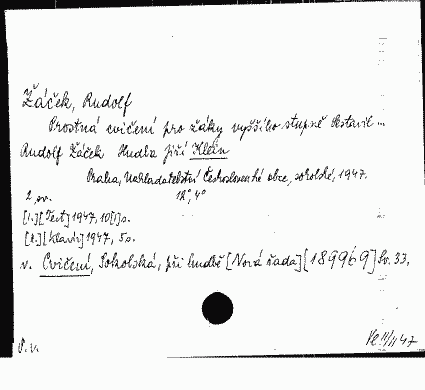 Žáček, Rudolf
Prostná cvičení pro žáky vyššího stupně Sestavil ...
Rudolf Žáček Hudba Jiří Klein
Praha, Nakladatelství Československé obce, sokolské, 1947.
2 sv. 12°, 4°
[1.] [Text] 1947, 10[1]s.
[2.] [Klavír] 1947, 5 s.
v. Cvičení, Sokolská, při hudbě [Nová řada] [189969] Sv. 33,
P. v.